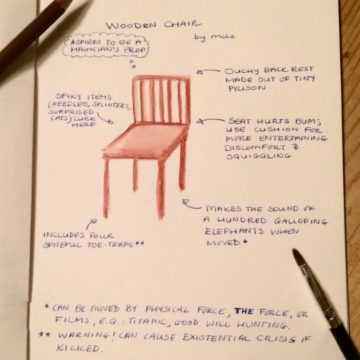 WOODEN CHAIR
by mila
ASPIRES TO BE A
MAGICIAN'S PROP
OUCHY BACK REST
MADE OUT OF TINY
PRISON
SPIKY ITEMS
(NEEDLES, SPLINTERS,
SURPRISED
CATS) LURK
HERE
SEAT HURTS BUM;
USE CUSHION FOR
MORE ENTERTAINING
DISCOMFORT &
SQUIGGLING
MAKES THE SOUND OF
A HUNDRED GALLOPING
ELEPHANTS WHEN
MOVED*
INCLUDES FOUR
SPITEFUL TOE-TRAPS**
* CAN BE MOVED BY PHYSICAL FORCE, THE FORCE, OR
FILMS, E.G. TITANIC, GOOD WILL HUNTING.
** WARNING! CAN CAUSE EXISTENTIAL CRISIS IF
KICKED.